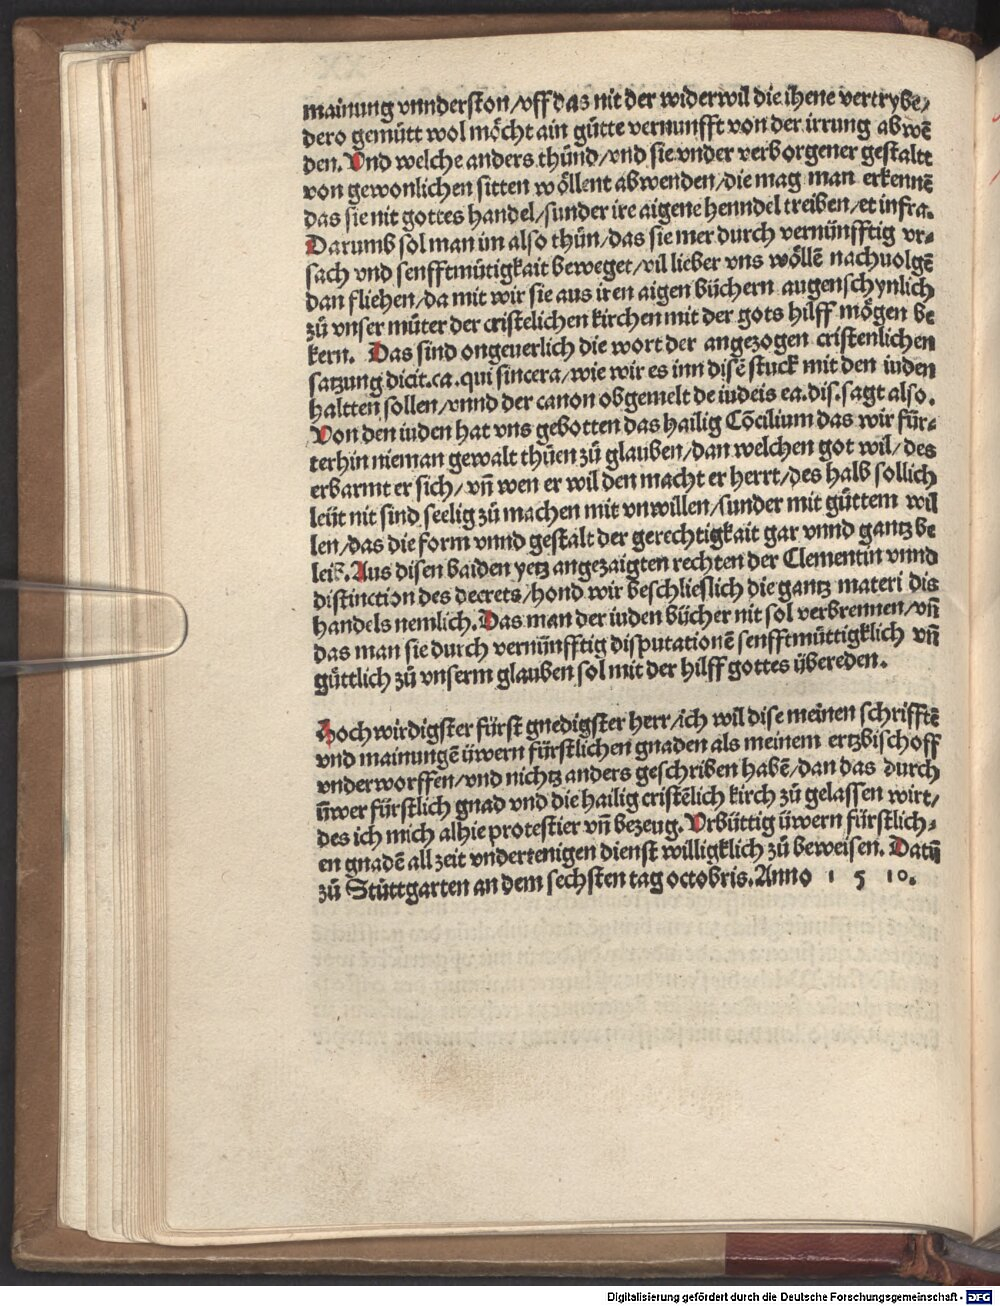 mainung vnnderston/vff das nit der widerwil die ihene vertrybe/
dero gemütt wol möcht ain gütte vernunfft von der irrung abwē
den. Vnd welche anders thünd/vnd sie vnder verborgener gestaltt
von gewonlichen sitten wöllent abwenden/die mag man erkennē
das sie nit gottes handel/sunder ire aigene henndel treiben/et infra.
Darumb sol man im also thün/das sie mer durch vernünfftig vr⸗
sach vnd senfftmütigkait beweget/vil lieber vns wöllē nachuolgē
dan fliehen/da mit wir sie aus iren aigen büchern augenschynlich
zů vnser müter der cristelichen kirchen mit der gots hilff mögen be
kern. Das sind ongeuerlich die wort der angezogen cristenlichen
satzung dicit.ca.qui sincera/wie wir es inn disē stuck mit den iuden
haltten sollen/vnnd der canon obgemelt de iudeis ea.dis.sagt also.
Von den iuden hat vns gebotten das hailig Cōcilium das wir für⸗
terhin nieman gewalt thüen zů glauben/dan welchen got wil/des
erbarmt er sich/vn̄ wen er wil den macht er herrt/des halb sollich
leüt nit sind seelig zů machen mit vnwillen/sunder mit güttem wil
len/das die form vnnd gestalt der gerechtigkait gar vnnd gantz be
leib. Aus disen baiden yetz angezaigten rechten der Clementin vnnd
distinction des decrets/hond wir beschlieslich die gantz materi dis
handels nemlich. Das man der iuden bücher nit sol verbrennen/vn̄
das man sie durch vernünfftig disputationē senfftmüttigklich vn̄
güttlich zů vnserm glauben sol mit der hilff gottes übereden.
Hochwirdigster fürst gnedigster herr/ich wil dise meinen schrifftē
vnd mainungē üwern fürstlichen gnaden als meinem ertzbischoff
vnderworffen/vnd nichtz anders geschriben habē/dan das durch
üwer fürstlich gnad vnd die hailig cristēlich kirch zů gelassen wirt/
des ich mich alhie protestier vn̄ bezeug. Vrbüttig üwern fürstlich⸗
en gnadē all zeit vndertenigen dienst willigklich zů beweisen. Datū
zů Stüttgarten an dem sechsten tag octobris. Anno 1 5 10.
Digitalisierung gefördert durch die Deutsche Forschungsgemeinschaft - DFG